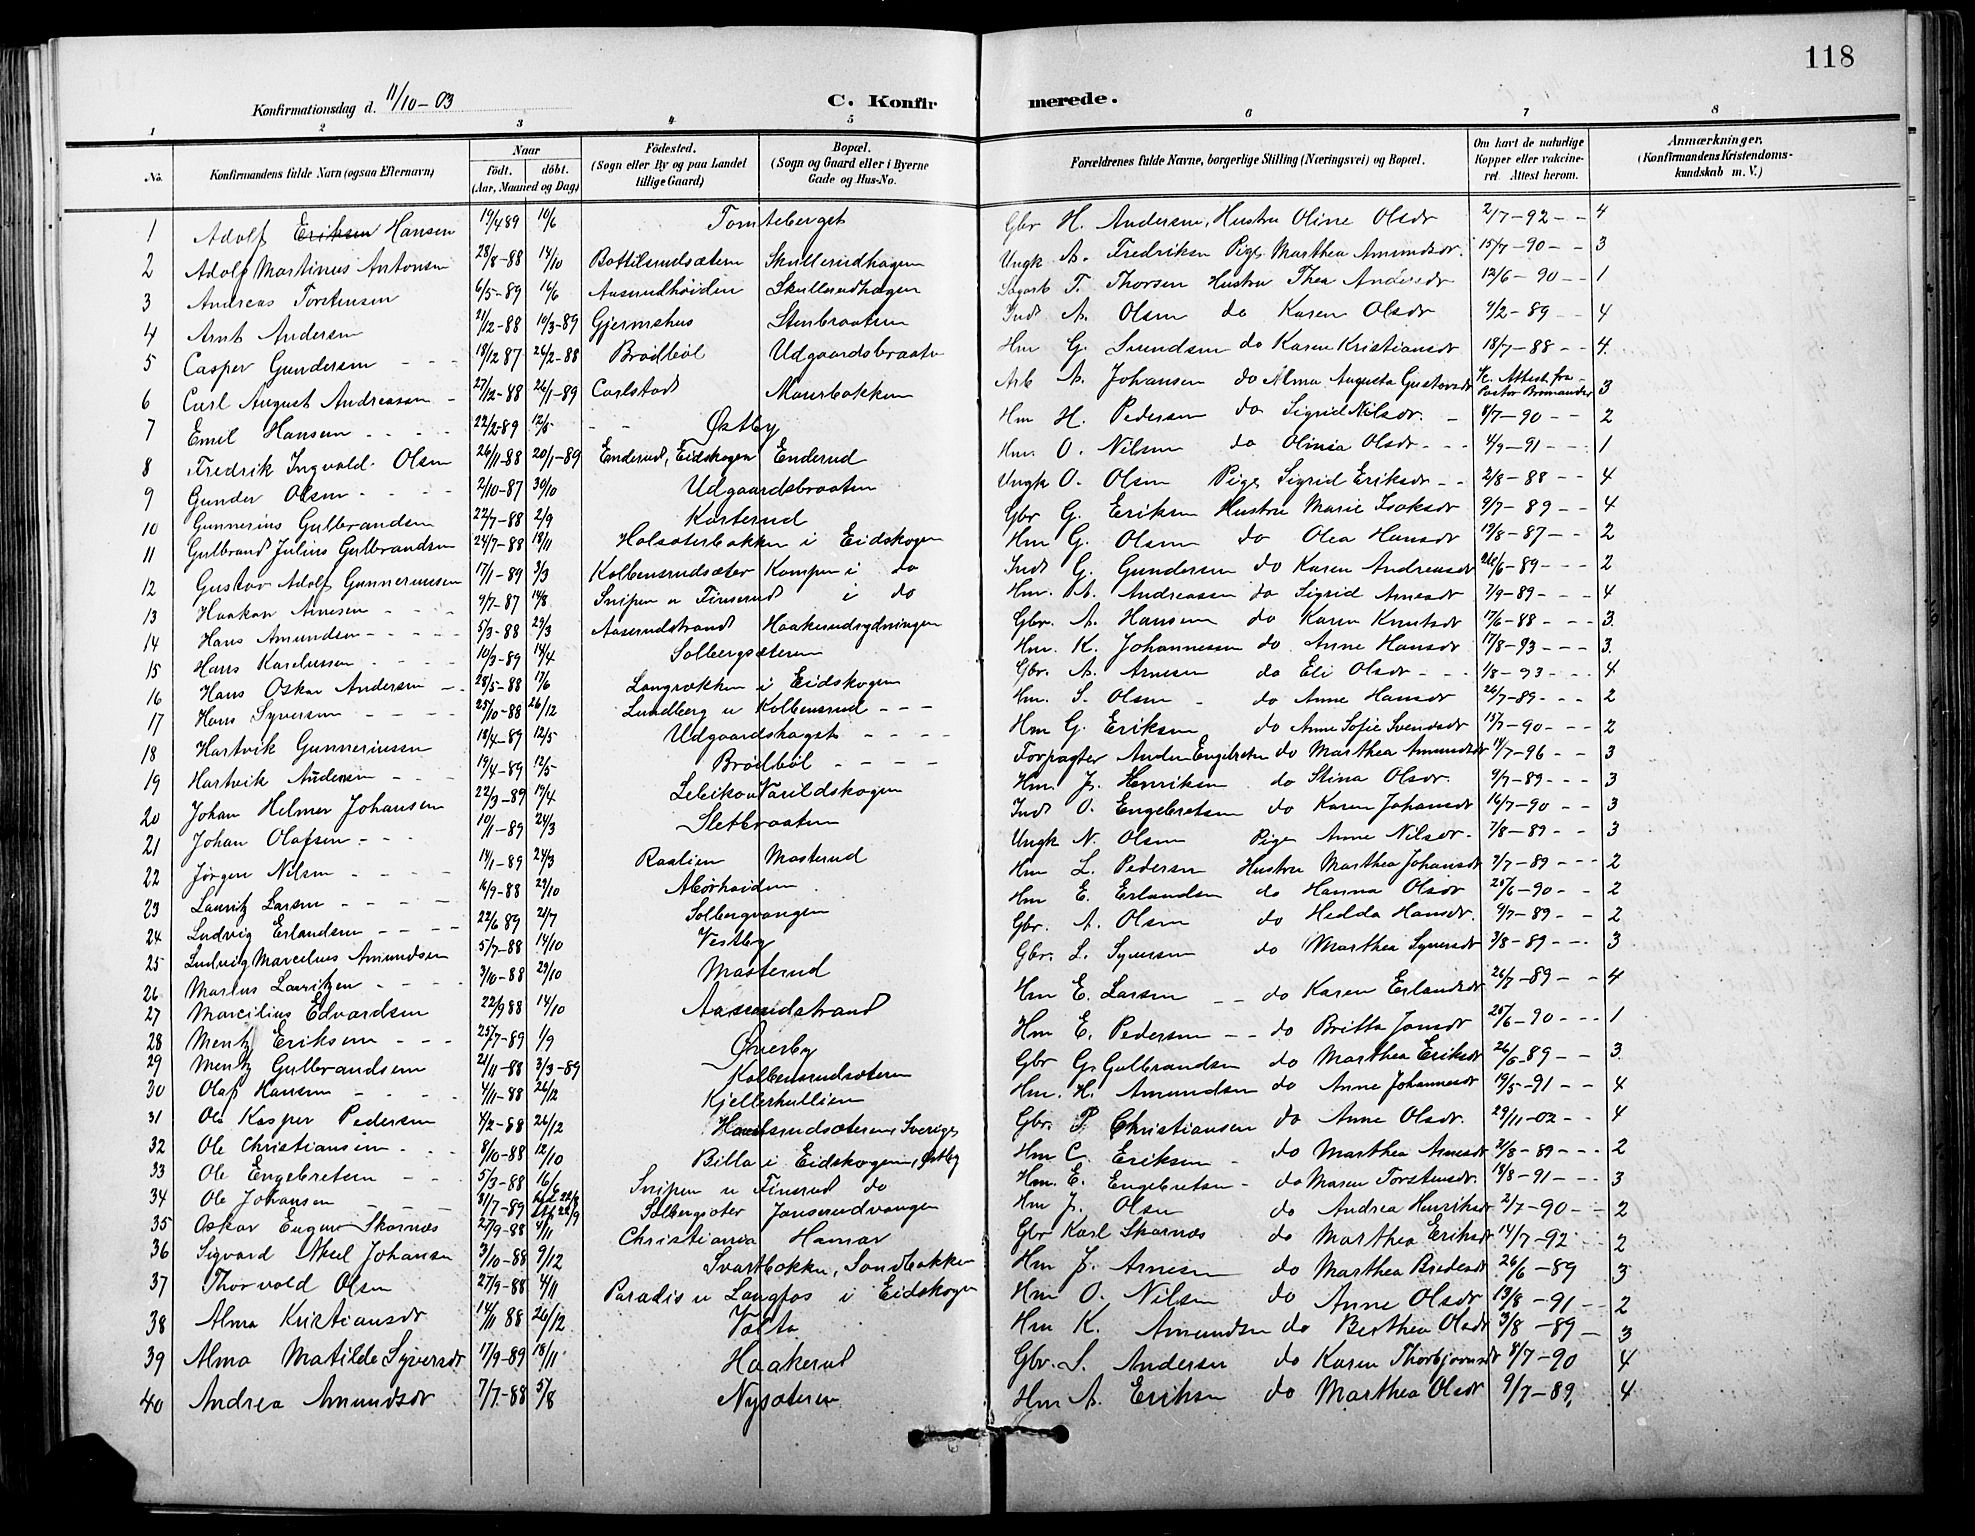 118
Konfirmationsdag d. 11/10-03
C. Konfirmerede.
1 2 3 4 5 6 7 8
No. Konfirmandens fulde Navn (ogsaa Efternavn) Naar født. døbt. (Aar, Maaned og Dag) Fødested. (Sogn eller By og paa Landet tillige Gaard) Bopæl. (Sogn og Gaard eller i Byerne Gade og Hus-No. Forældrenes fulde Navne, borgerlige Stilling (Næringsvei) og Bopæl. Om havt de naturlige Kopper eller vakcineret. Attest herom. Anmærkninger. (Konfirmandens Kristendomskundskab m. V.)
1 Adolf Eriksen Hansen 19/4 89 10/6 Tomteberget Gbr H. Andersen, Hustru Oline Olsdr 2/7-92 - - 4
2 Adolf Martinus Antonsen 28/8-88 14/10 Bottilsrudsætern Skullerudhagen Ungk A. Fredriksen Pige Marthea Amundsdr. 15/7-90 - - 3
3 Andreas Torstensen 6/5-89 16/6 Aaserudhøiden Skullerudhagen T. Thorsen Hustru Thea Andersdr 12/6-90 - - 1
4 Arnt Andersen 21/12-88 10/3-89 Gjermshus Stenbraaten Inds A. Olsen do Karen Olsdr 9/2-89 - - 4
5 Casper Gundersen - - - 19/12 87 26/2-88 Brødbøl Udgaardsbraaten Hm G. Svendsen do Karen Kristiansdr 18/7-88 - - 4.
6 Carl August Andreassen - 27/12-88 26/1-89 Carlstad Maurbakken Arb A. Johansen do Alma Augusta Gustavsdr Attest fra Pastor Bromander 3
7 Emil Hansen - - - - 22/2-89 12/5 - - Østby Hm H. Pedersen do Sigrid Nilsdr. - 8/7-90 - - 2
8 Fredrik Ingvald Olsen 26/11-88 20/1-89 Enderud, Eidskogen Enderud Hm. O. Nilsen do Olinia Olsdr - - - 4/9-91 - - - 1
9 Gunder Olsen - - - - 2/10-87 30/10 Udgaardsbraaten Ungk O. Olsen Pige Sigrid Eriksdr - - 2/8-88 - - 4
10 Gunnerius Gulbrandsen 22/7-88 2/9 Kasterud Gbr G. Eriksen Hustru Marie Isaksdr 9/7-89 - - 4
11 Gulbrand Julius Gulbrandsen 24/7-88 18/11 Holsæterbakken i Eidskogen Hm G. Olsen do Olea Hansdr 19/8-87 - - 2
12 Gustav Adolf Gunneriussen 17/1-89 3/3 Kolbensrudsæter Kampen i do Inds G. Gundersen do Karen Andreasdr 26/6-89 - - - 2
13 Haakon Arnesen - - - 9/7-87 14/8 Snipen u Finserud i do Hm. A. Andreassen do Sigrid Arnesdr 7/9-89 - - - 4
14 Hans Amundsen - - - - - 5/3-88 29/3 Aaserudstrand Haakerudsrydningen Gbr. A. Hansen do Karen Knutsdr 17/6-88 - - - 3.
15 Hans Karelussen - - - - 10/3-89 14/4 Solbergsæteren Hm. K. Johannessen do Anne Hansdr 17/8-93 - - - 3.
16 Hans Oskar Andersen - - 28/5-88 17/6 Langrækken i Eidskogen Gbr. A. Arnesen do Eli Olsdr - - - 1/8-93 - - - 4
17 Hans Syversen - - - - 25/10-88 26/12 Lundberg u Kolbensrud - - - Hm. S. Olsen - do Anne Hansdr 26/7-89 - - - 2
18 Hartvik Gunneriussen 18/4-89 12/5 Udgaardshaget - - - - Hm G. Eriksen do Anne Sofie Svendsdr 15/7-90 - - - 2
19 Hartvik Andersen - - - 19/4-89 12/5 Brødbøl - - - - Forpagter Anders Engebretsen do Marthea Amundsdr 14/7-96 - - 3
20 Johan Helmer Johansen 22/3-89 19/4 Lebikon Varildskogen Hm. J. Henriksen do Stina Olsdr. 9/7-89 - - - 3
21 Johan Olafsen - - - 10/1-89 24/3 Sletbraaten Inds O. Engebretsen do Karen Johansdr 16/7-90 - - - 3
22 Jørgen Nilsen - - - - 14/1-89 24/3 Raalien Masterud Ungk N. Olsen Pige Anne Nilsdr. 7/8-89 - - 3
23 Lauritz Larsen - - - - 16/9-88 29/10 Aborhøiden Hm L. Pedersen Hustru Marthea Johansdr 7/7-89 - - - 2
24 Ludvig Erlandsen - - - - 22/6 89 21/7 Solbergvangen Hm E. Erlandsen do Hanna Olsdr 25/6-90 - - 2
25 Ludvig Marcelius Amundsen 5/7-88 14/10 Vestby Gbr. A. Olsen do Hedda Hansdr. 9/7-89 - - 2
26 Marius Lauritzen - - - - 3/10-88 29/10 Masterud Gbr. L. Syversen do Marthea Syversdr 3/8-89 - - - 3
27 Marcilius Edvardsen 22/9 88 14/10 Aaserudstrand Hm E. Larsen - - do Karen Erlandsdr 26/7-89 - - 4
28 Mentz Eriksen - - - 25/7-89 1/9 Øverby Hm E. Pedersen - - do Britta Jonsdr 25/6-90 - - - 1
29 Mentz Gulbrandsen 21/11-88 3/3-89 Kolbensrudsæteren Gbr G. Gulbrandsen do Marthea Eriksdr 26/6-89 - - 3
30 Olaf Hansen - - - - 4/11-88 26/12 Kjellerhullien Hm. H. Amundsen do Anne Johannesdr 19/5-91 - - 4
31 Ole Kasper Pedersen 4/2-88 26/12 Sverige Gbr. P. Christiansen do Anne Olsdr. 29/11-02 - - 4
32 Ole Christiansen - - - 8/10-88 12/10 Billa i Eidskogen, Østby Hm C. Eriksen - do Marthea Arnesdr 21/8-89 - - - 2
33 Ole Engebretsen - - 5/3-88 16/6 Snipen u Finserud do Hm. E. Engebretsen - do Maren Torstensdr. 18/8-91 - - - 3
34 Ole Johansen - - - 31/7-89 Solbergsæter Janserudvangen Hm J. Olsen do Andrea Henriksdr 2/7-90 - - 2
35 Oskar Eugen Skarnæs 27/9-88 4/11 Christiania Hamar Gbr Karl Skarnæs do Marthea Eriksdr 14/7-92 2
36 Sigvard Aksel Johansen 3/10-88 9/12 Svartbakken, Sandbakken Hm J. Arnesen do Marthea Bredesdr 26/6-89 3
37 Thorvald Olsen 27/9-88 4/11 Paradis u Langfos i Eidskogen Hm O. Nilsen do Anne Olsdr 13/8-91 - - 2
38 Alma Kristiansdr 14/11 88 26/12 Valta Hm K. Amundsen do Berthea Olsdr 3/8-89 - 3
39 Alma Matilde Syversdr 17/9-89 18/11 Haakerud Gbr. S. Andersen do Karen Thorbjørnsdr 8/7-90 4
40 Andrea Amundsdr 7/7-88 5/8 Nysæteren Hm A. Eriksen do Marthea Olsdr 9/7-89. 4